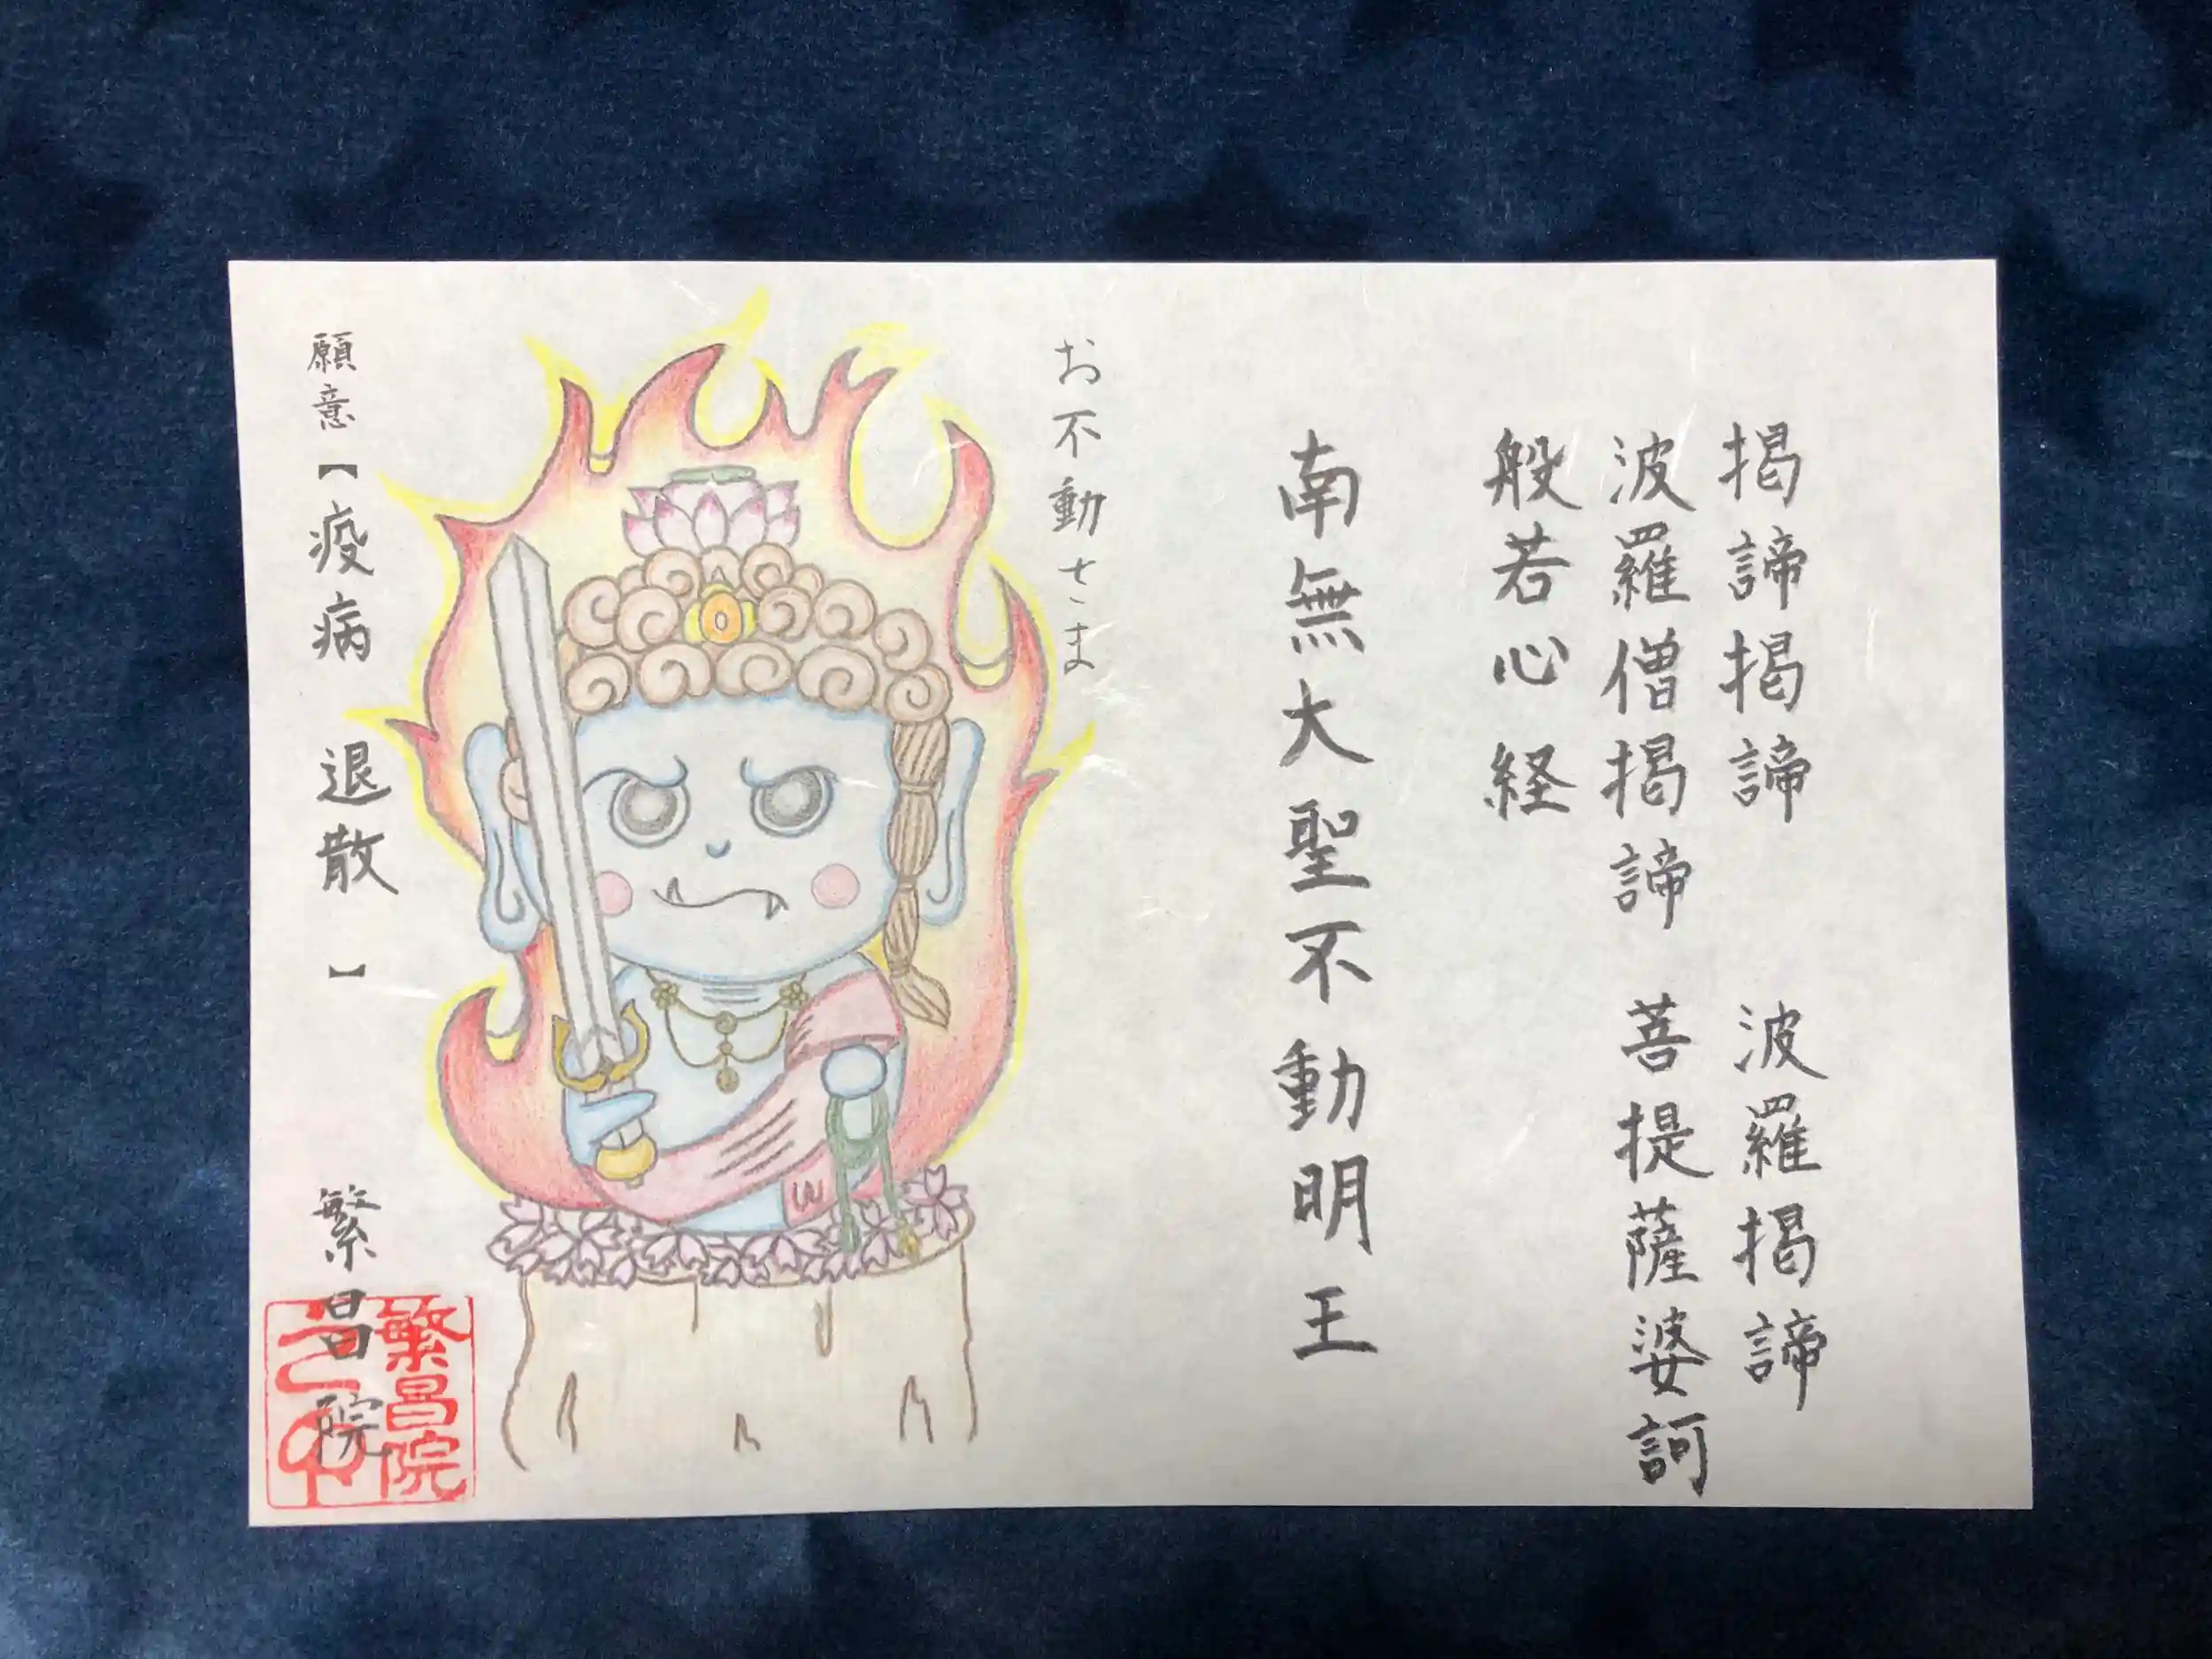 掲諦掲諦 波羅掲諦
波羅僧掲諦 菩提薩婆訶
般若心経
南無大聖不動明王
お不動さま
願意【疫病 退散】 繁昌院
繁昌院